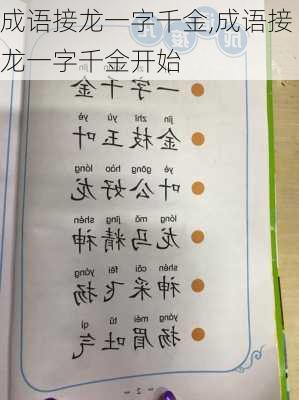 成语接龙一字千金,成语接
龙一字千金开始
一字千金
jīn zhī yù yè
金枝玉叶
yè gōng hào lóng
叶公好龙
lóng mǎ jīng shén
龙马精神
shén cǎi fēi yáng
神采飞扬
yáng méi tǔ qì
扬眉吐气
2